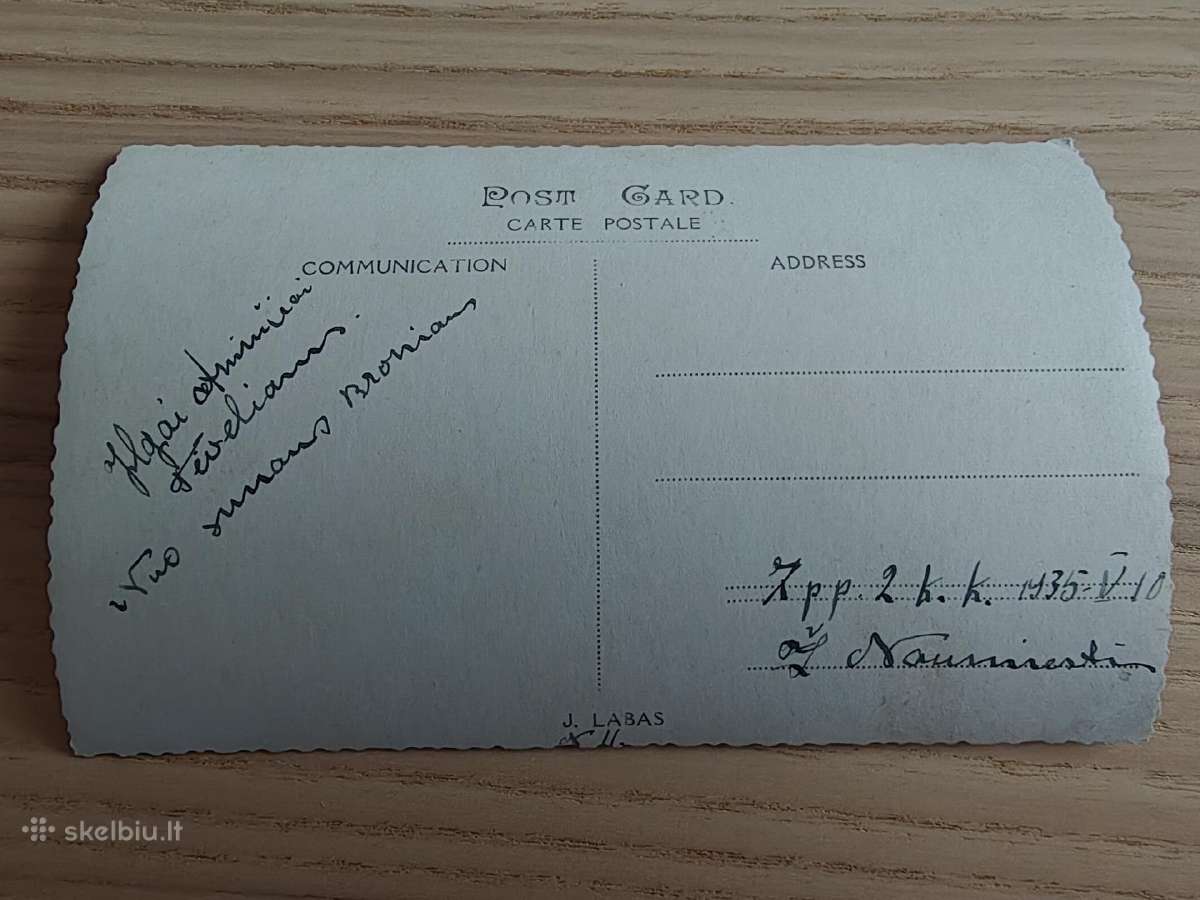 POST CARD.
CARTE POSTALE
COMMUNICATION
ADDRESS
Ilgai atminčiai
tėveliams.
Nuo sunaus Broniaus
pp. 2 k. k. 1935-V-10
Ž Naumiestis
J. LABAS
skelbiu.lt